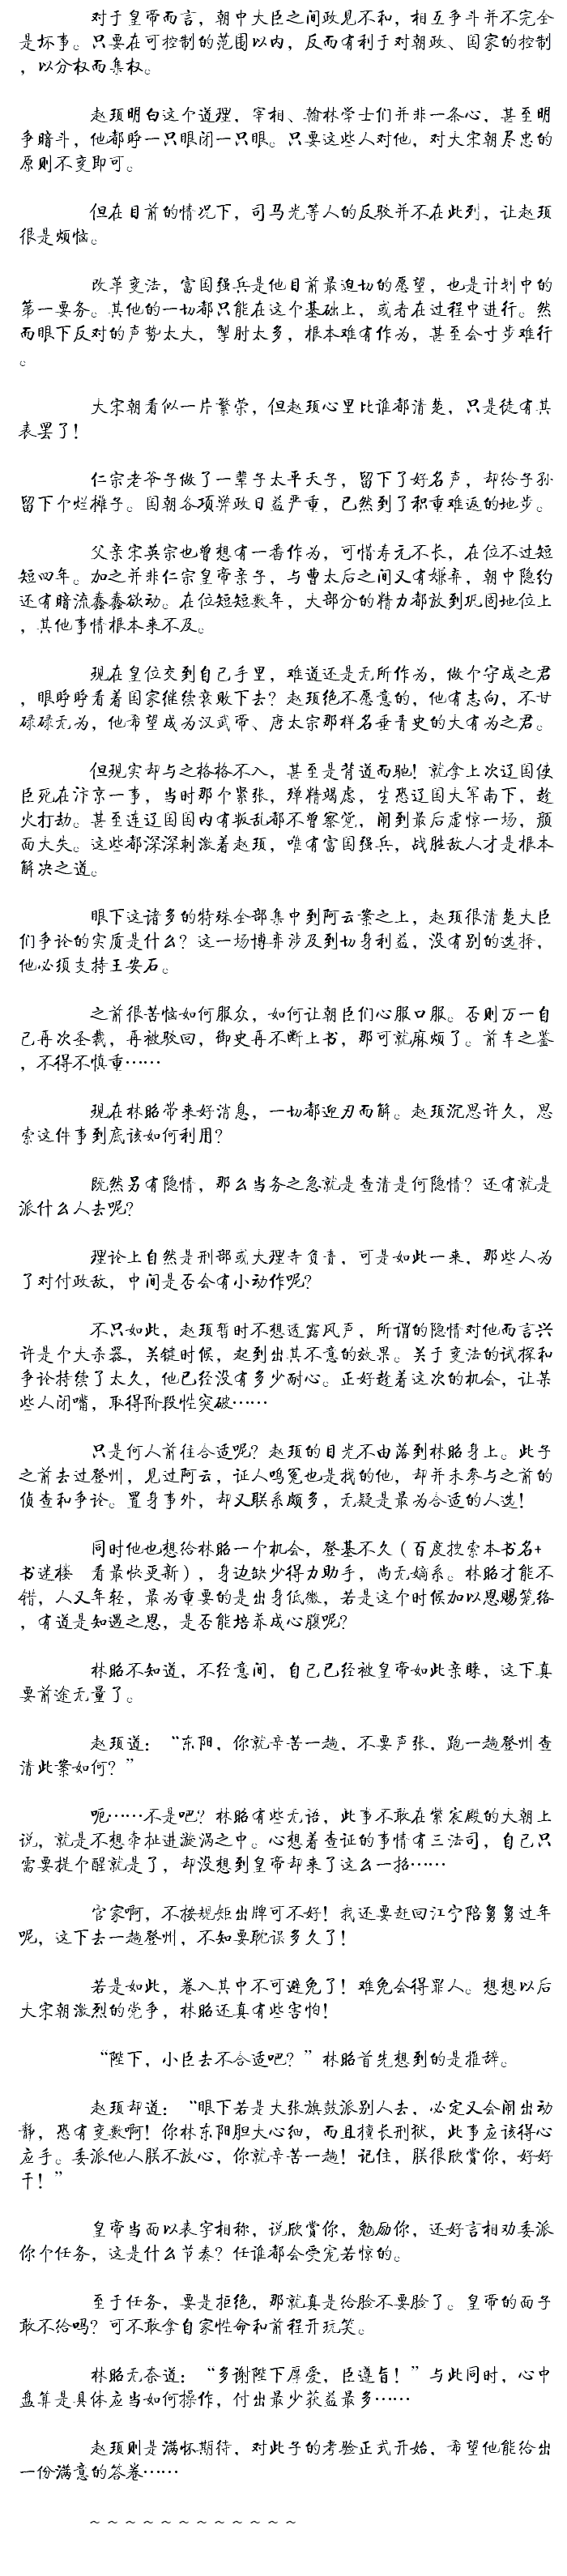 对于皇帝而言，朝中大臣之间政见不和，相互争斗并不完全
是坏事。只要在可控制的范围以内，反而有利于对朝政、国家的控制
，以分权而集权。
赵顼明白这个道理，宰相、翰林学士们并非一条心，甚至明
争暗斗，他都睁一只眼闭一只眼。只要这些人对他，对大宋朝尽忠的
原则不变即可。
但在目前的情况下，司马光等人的反驳并不在此列，让赵顼
很是烦恼。
改革变法，富国强兵是他目前最迫切的愿望，也是计划中的
第一要务。其他的一切都只能在这个基础上，或者在过程中进行。然
而眼下反对的声势太大，掣肘太多，根本难有作为，甚至会寸步难行
。
大宋朝看似一片繁荣，但赵顼心里比谁都清楚，只是徒有其
表罢了！
仁宗老爷子做了一辈子太平天子，留下了好名声，却给子孙
留下个烂摊子。国朝各项弊政日益严重，已然到了积重难返的地步。
父亲宋英宗也曾想有一番作为，可惜寿元不长，在位不过短
短四年。加之并非仁宗皇帝亲子，与曹太后之间又有嫌弃，朝中隐约
还有暗流蠢蠢欲动。在位短短数年，大部分的精力都放到巩固地位上
，其他事情根本来不及。
现在皇位交到自己手里，难道还是无所作为，做个守成之君
，眼睁睁看着国家继续衰败下去？赵顼绝不愿意的，他有志向，不甘
碌碌无为，他希望成为汉武帝、唐太宗那样名垂青史的大有为之君。
但现实却与之格格不入，甚至是背道而驰！就拿上次辽国使
臣死在汴京一事，当时那个紧张，殚精竭虑，生恐辽国大军南下，趁
火打劫。甚至连辽国国内有叛乱都不曾察觉，闹到最后虚惊一场，颜
面大失。这些都深深刺激着赵顼，唯有富国强兵，战胜敌人才是根本
解决之道。
眼下这诸多的特殊全部集中到阿云案之上，赵顼很清楚大臣
们争论的实质是什么？这一场博弈涉及到切身利益，没有别的选择，
他必须支持王安石。
之前很苦恼如何服众，如何让朝臣们心服口服。否则万一自
己再次圣裁，再被驳回，御史再不断上书，那可就麻烦了。前车之鉴
，不得不慎重……
现在林昭带来好消息，一切都迎刃而解。赵顼沉思许久，思
索这件事到底该如何利用？
既然另有隐情，那么当务之急就是查清是何隐情？还有就是
派什么人去呢？
理论上自然是刑部或大理寺负责，可是如此一来，那些人为
了对付政敌，中间是否会有小动作呢？
不只如此，赵顼暂时不想透露风声，所谓的隐情对他而言兴
许是个大杀器，关键时候，起到出其不意的效果。关于变法的试探和
争论持续了太久，他已经没有多少耐心。正好趁着这次的机会，让某
些人闭嘴，取得阶段性突破……
只是何人前往合适呢？赵顼的目光不由落到林昭身上。此子
之前去过登州，见过阿云，证人鸣冤也是找的他，却并未参与之前的
侦查和争论。置身事外，却又联系颇多，无疑是最为合适的人选！
同时他也想给林昭一个机会，登基不久（百度搜索本书名+
书迷楼　看最快更新），身边缺少得力助手，尚无嫡系。林昭才能不
错，人又年轻，最为重要的是出身低微，若是这个时候加以恩赐笼络
，有道是知遇之恩，是否能培养成心腹呢？
林昭不知道，不经意间，自己已经被皇帝如此亲睐，这下真
要前途无量了。
赵顼道：“东阳，你就辛苦一趟，不要声张，跑一趟登州查
清此案如何？”
呃……不是吧？林昭有些无语，此事不敢在紫宸殿的大朝上
说，就是不想牵扯进漩涡之中。心想着查证的事情有三法司，自己只
需要提个醒就是了，却没想到皇帝却来了这么一招……
官家啊，不按规矩出牌可不好！我还要赶回江宁陪舅舅过年
呢，这下去一趟登州，不知要耽误多久了！
若是如此，卷入其中不可避免了！难免会得罪人。想想以后
大宋朝激烈的党争，林昭还真有些害怕！
“陛下，小臣去不合适吧？”林昭首先想到的是推辞。
赵顼却道：“眼下若是大张旗鼓派别人去，必定又会闹出动
静，恐有变数啊！你林东阳胆大心细，而且擅长刑狱，此事应该得心
应手。委派他人朕不放心，你就辛苦一趟！记住，朕很欣赏你，好好
干！”
皇帝当面以表字相称，说欣赏你，勉励你，还好言相劝委派
你个任务，这是什么节奏？任谁都会受宠若惊的。
至于任务，要是拒绝，那就真是给脸不要脸了。皇帝的面子
敢不给吗？可不敢拿自家性命和前程开玩笑。
林昭无奈道：“多谢陛下厚爱，臣遵旨！”与此同时，心中
盘算是具体应当如何操作，付出最少获益最多……
赵顼则是满怀期待，对此子的考验正式开始，希望他能给出
一份满意的答卷……
～～～～～～～～～～～～